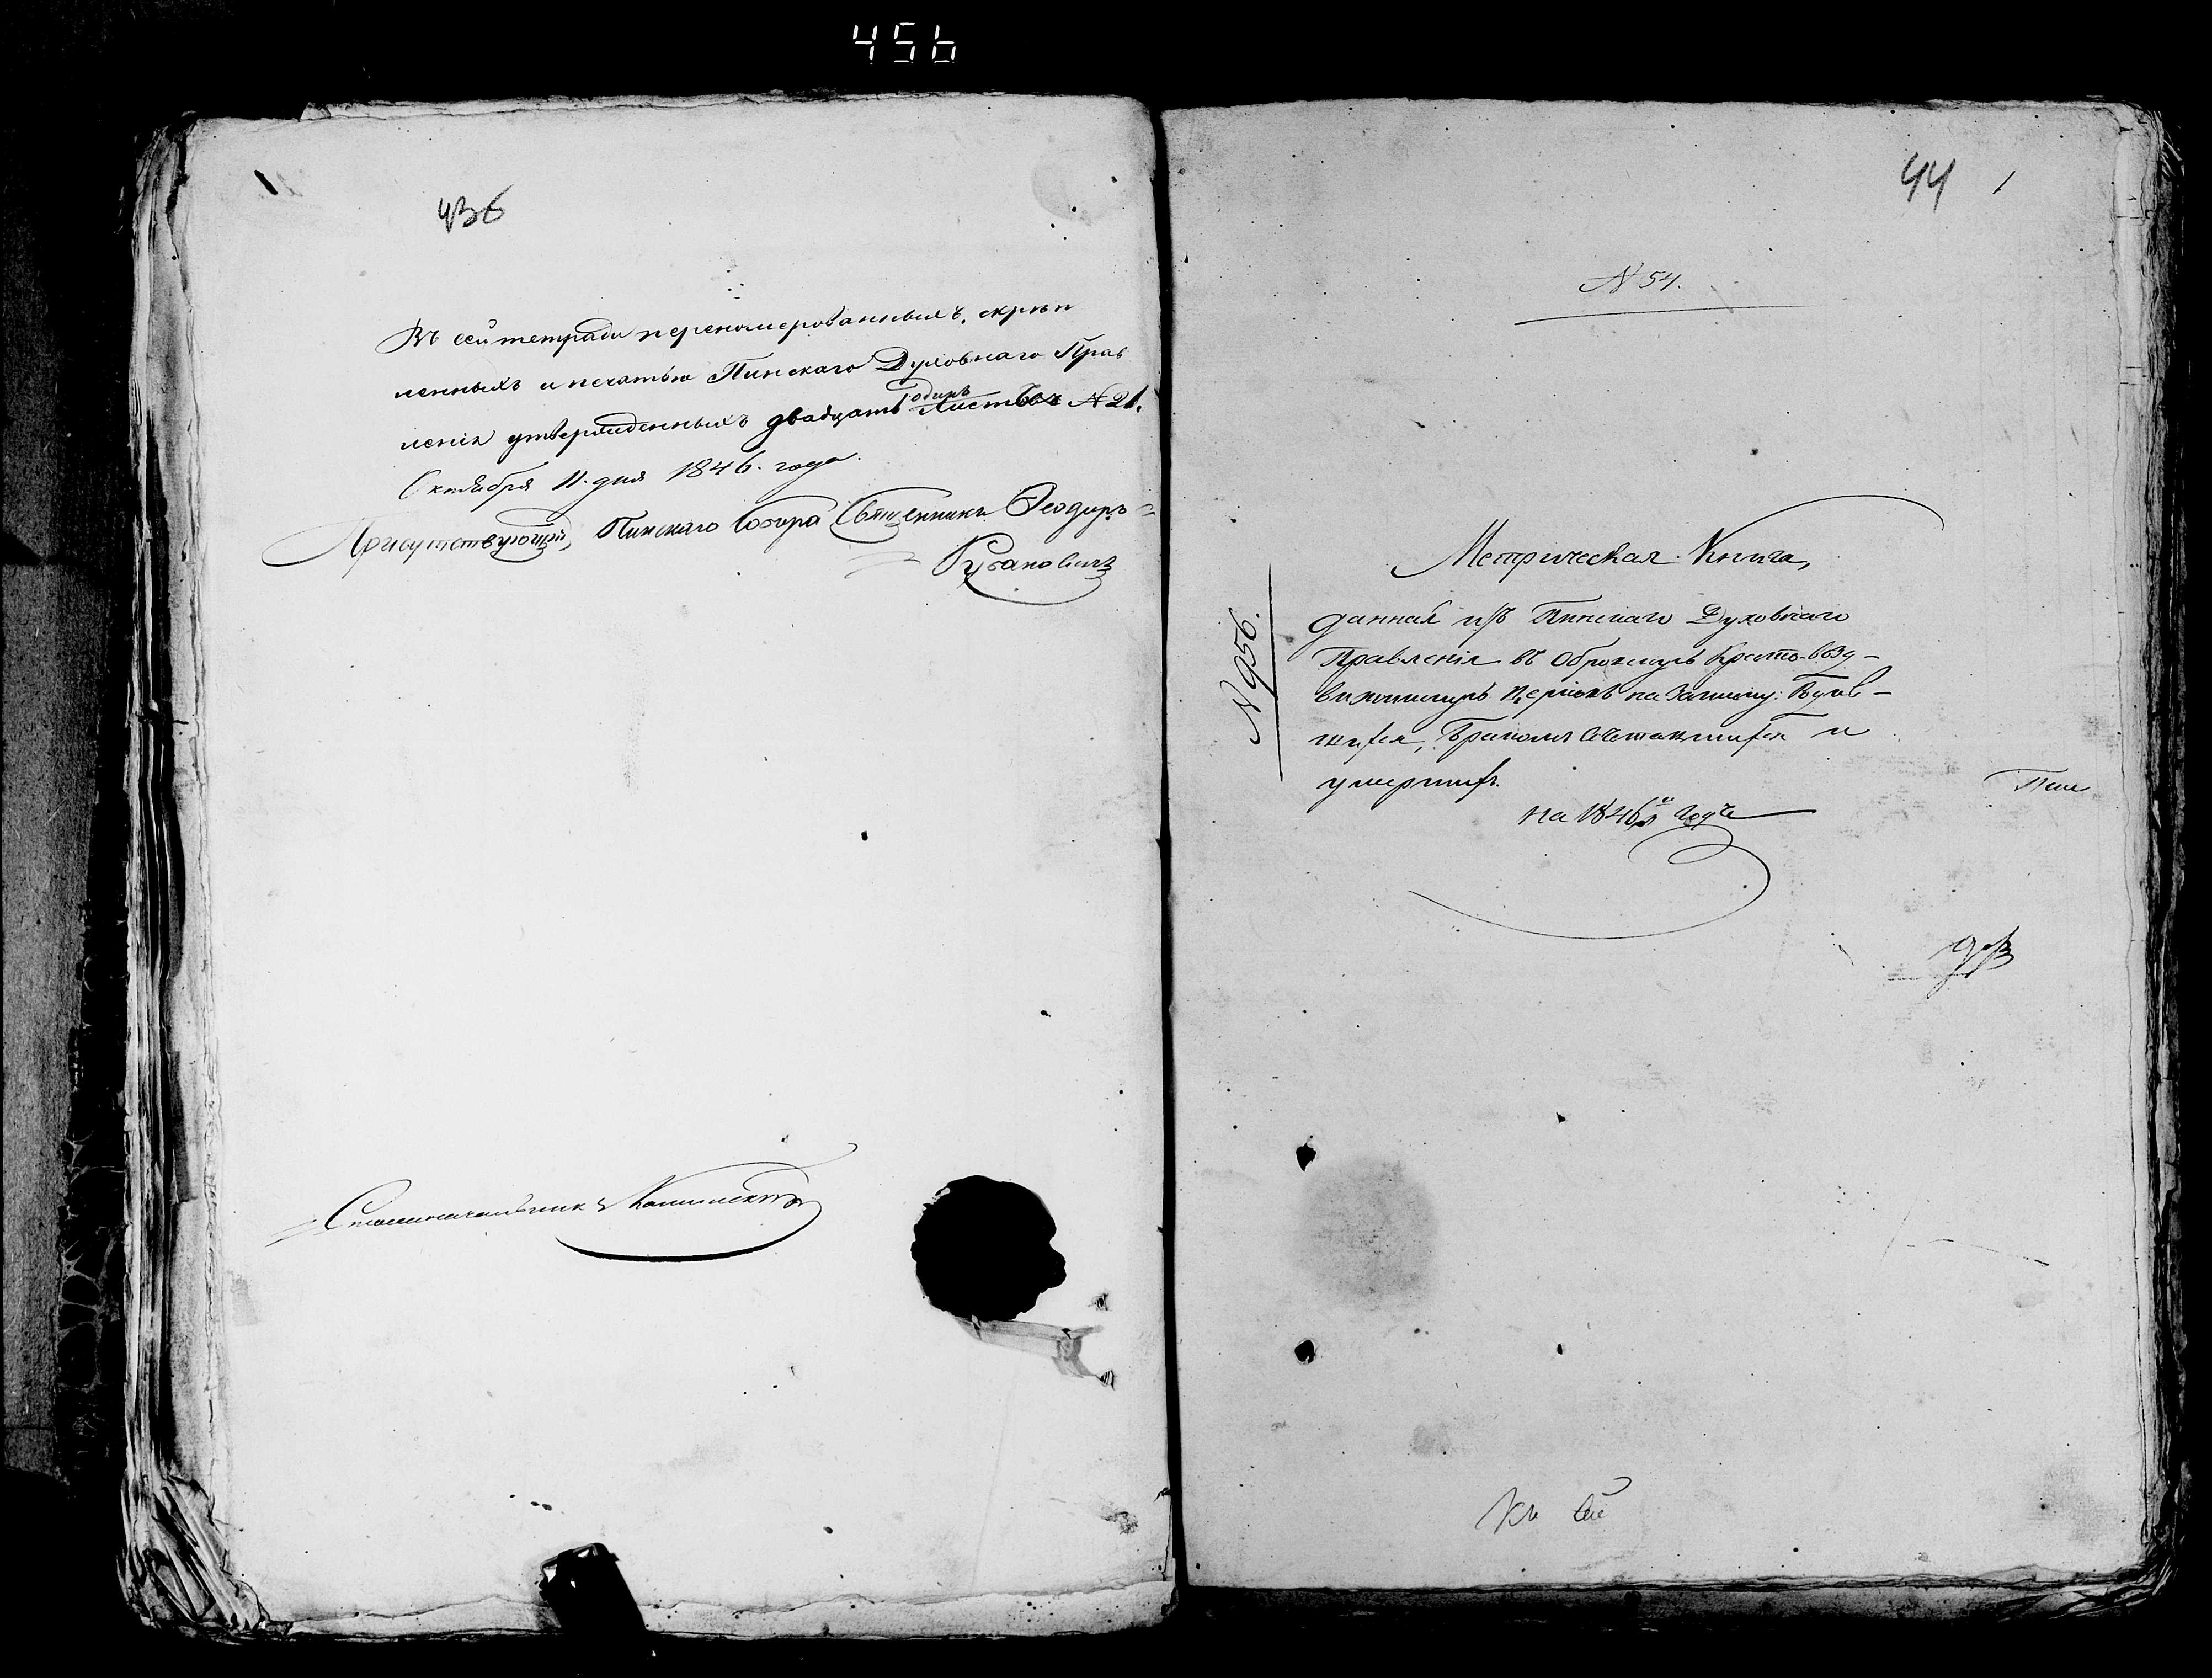 456
436
Въ сей тетради перономерованныхъ, скрѣп
ленныхъ и печатью Пинскаго Духовнаго Прав
ленія утвержденныхъ двадцать одинъ листъ № 21.
Октября 11. дня 1846. года.
Присутствующій, Пинскаго Собора Священникъ Ѳеодоръ
Русановичъ
Столоначальникъ
44 1
N 54.
Метрическая Книга,
N 956.
данная изъ Пинскаго Духовнаго
Правленія въ Обровскую Кресто-возд-
виженскую Церковь на записку:
Бракомъ Сочетавшихся и
умершихъ.
на 1846й годъ